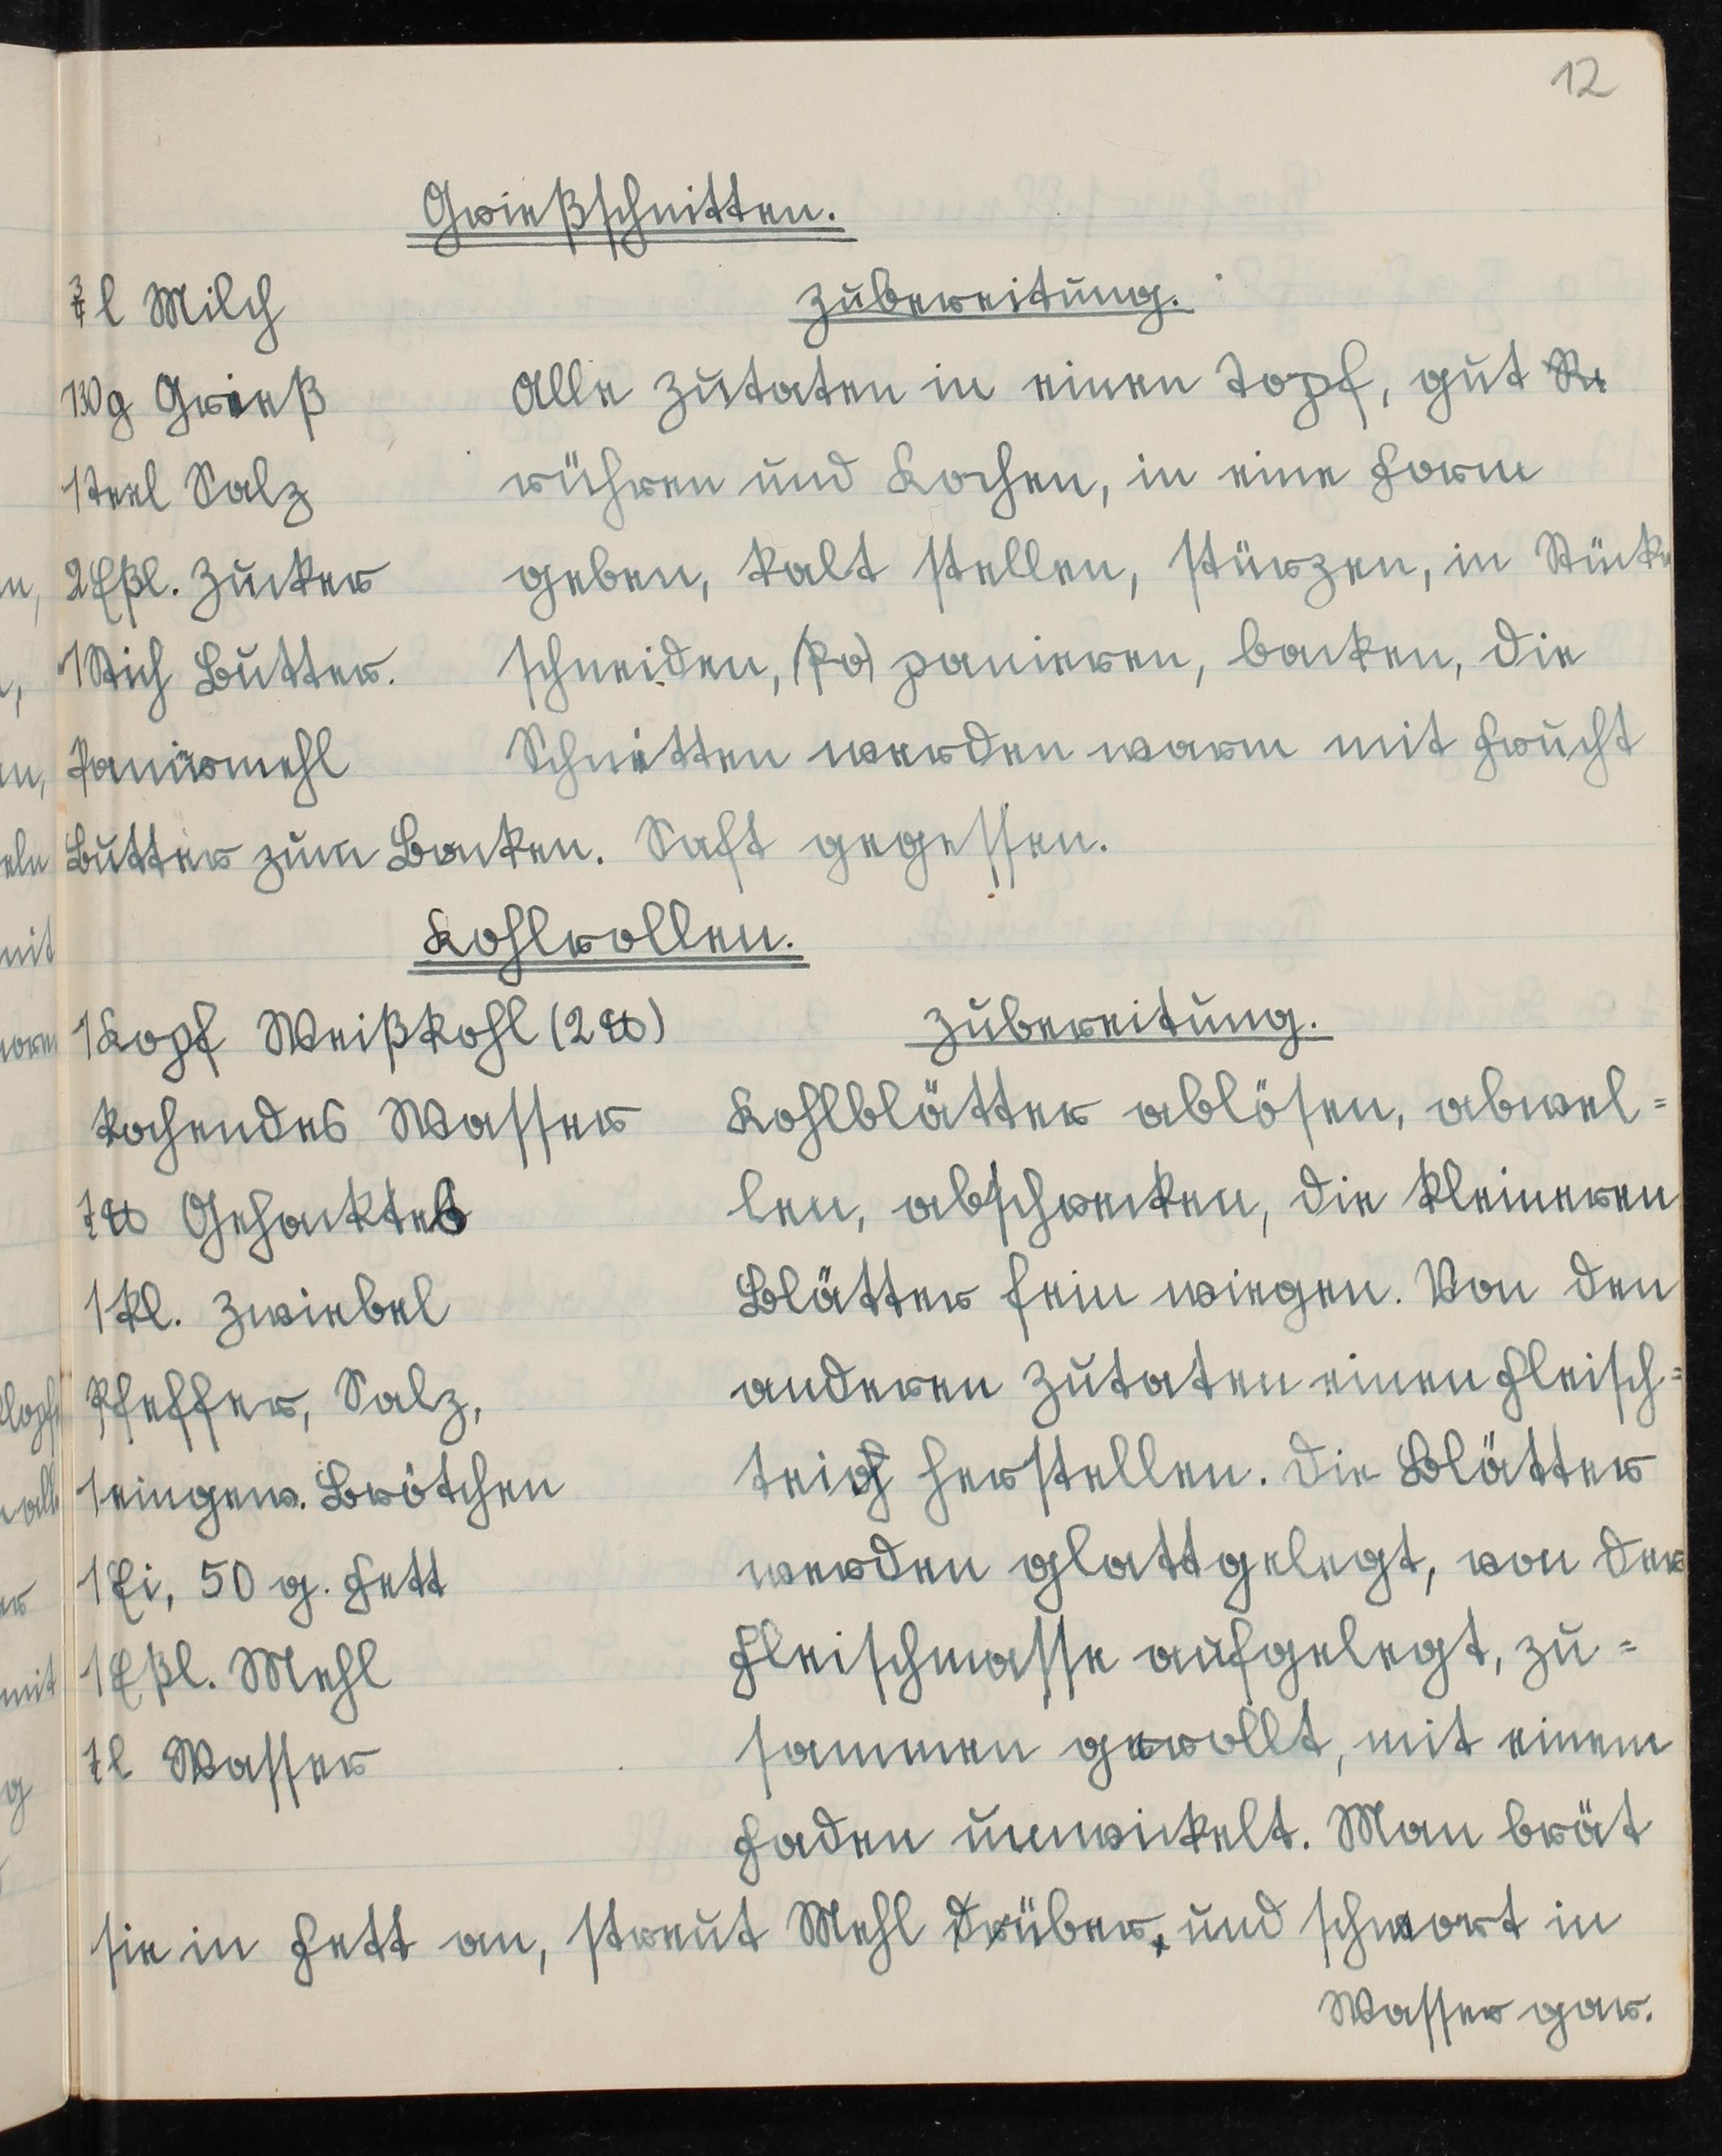 12
Grießschnitten.
¾ l Milch
130 g Grieß
1 Teel Salz
2 Eßl. Zucker
1 Stich Butter.
Paniermehl
Butter zum Backen.
Zubereitung.
Alle Zutaten in einen Topf, gut
rühren und Kochen, in eine Form
geben, kalt stellen, stürzen, in Stücke
schneiden, (pa) panieren, backen, die
Schnitten werden warm mit Frucht
Saft gegessen.
Kohlrollen.
1 Kopf Weißkohl (2 ℔)
kochendes Wasser
℔ Gehacktes
1 kl. Zwiebel
Pfeffer, Salz,
1 eingew. Brötchen
1 Ei, 50 g. Fett
1 Eßl. Mehl
l Wasser
Zubereitung.
Kohlblätter ablösen, abwel=
len, abschrecken, die kleineren
Blätter fein wiegen. Von den
anderen Zutaten einen Fleisch=
teig herstellen. Die Blätter
werden glattgelegt, von der
Fleischmasse aufgelegt, zu=
sammen gerollt, mit einem
Faden umwickelt. Man brät
sie in Fett an, streut Mehl drüber, und schmort in
Wasser gar.